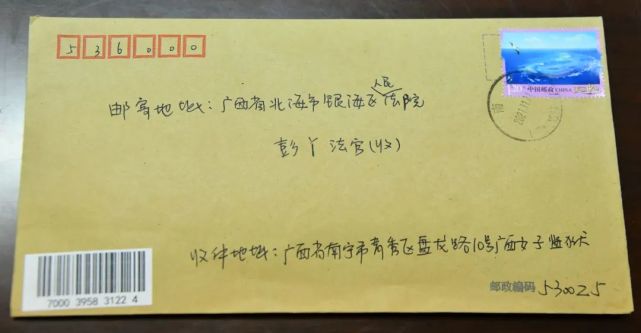 536000
1.20元 中国邮政 CHINA
邮寄地址：广西省北海市银海区人民法院
彭丫法官（收）
收件地址：广西省南宁市青秀区盘龙路10号广西女子监狱
7000 3958 3122 4
邮政编码 530025